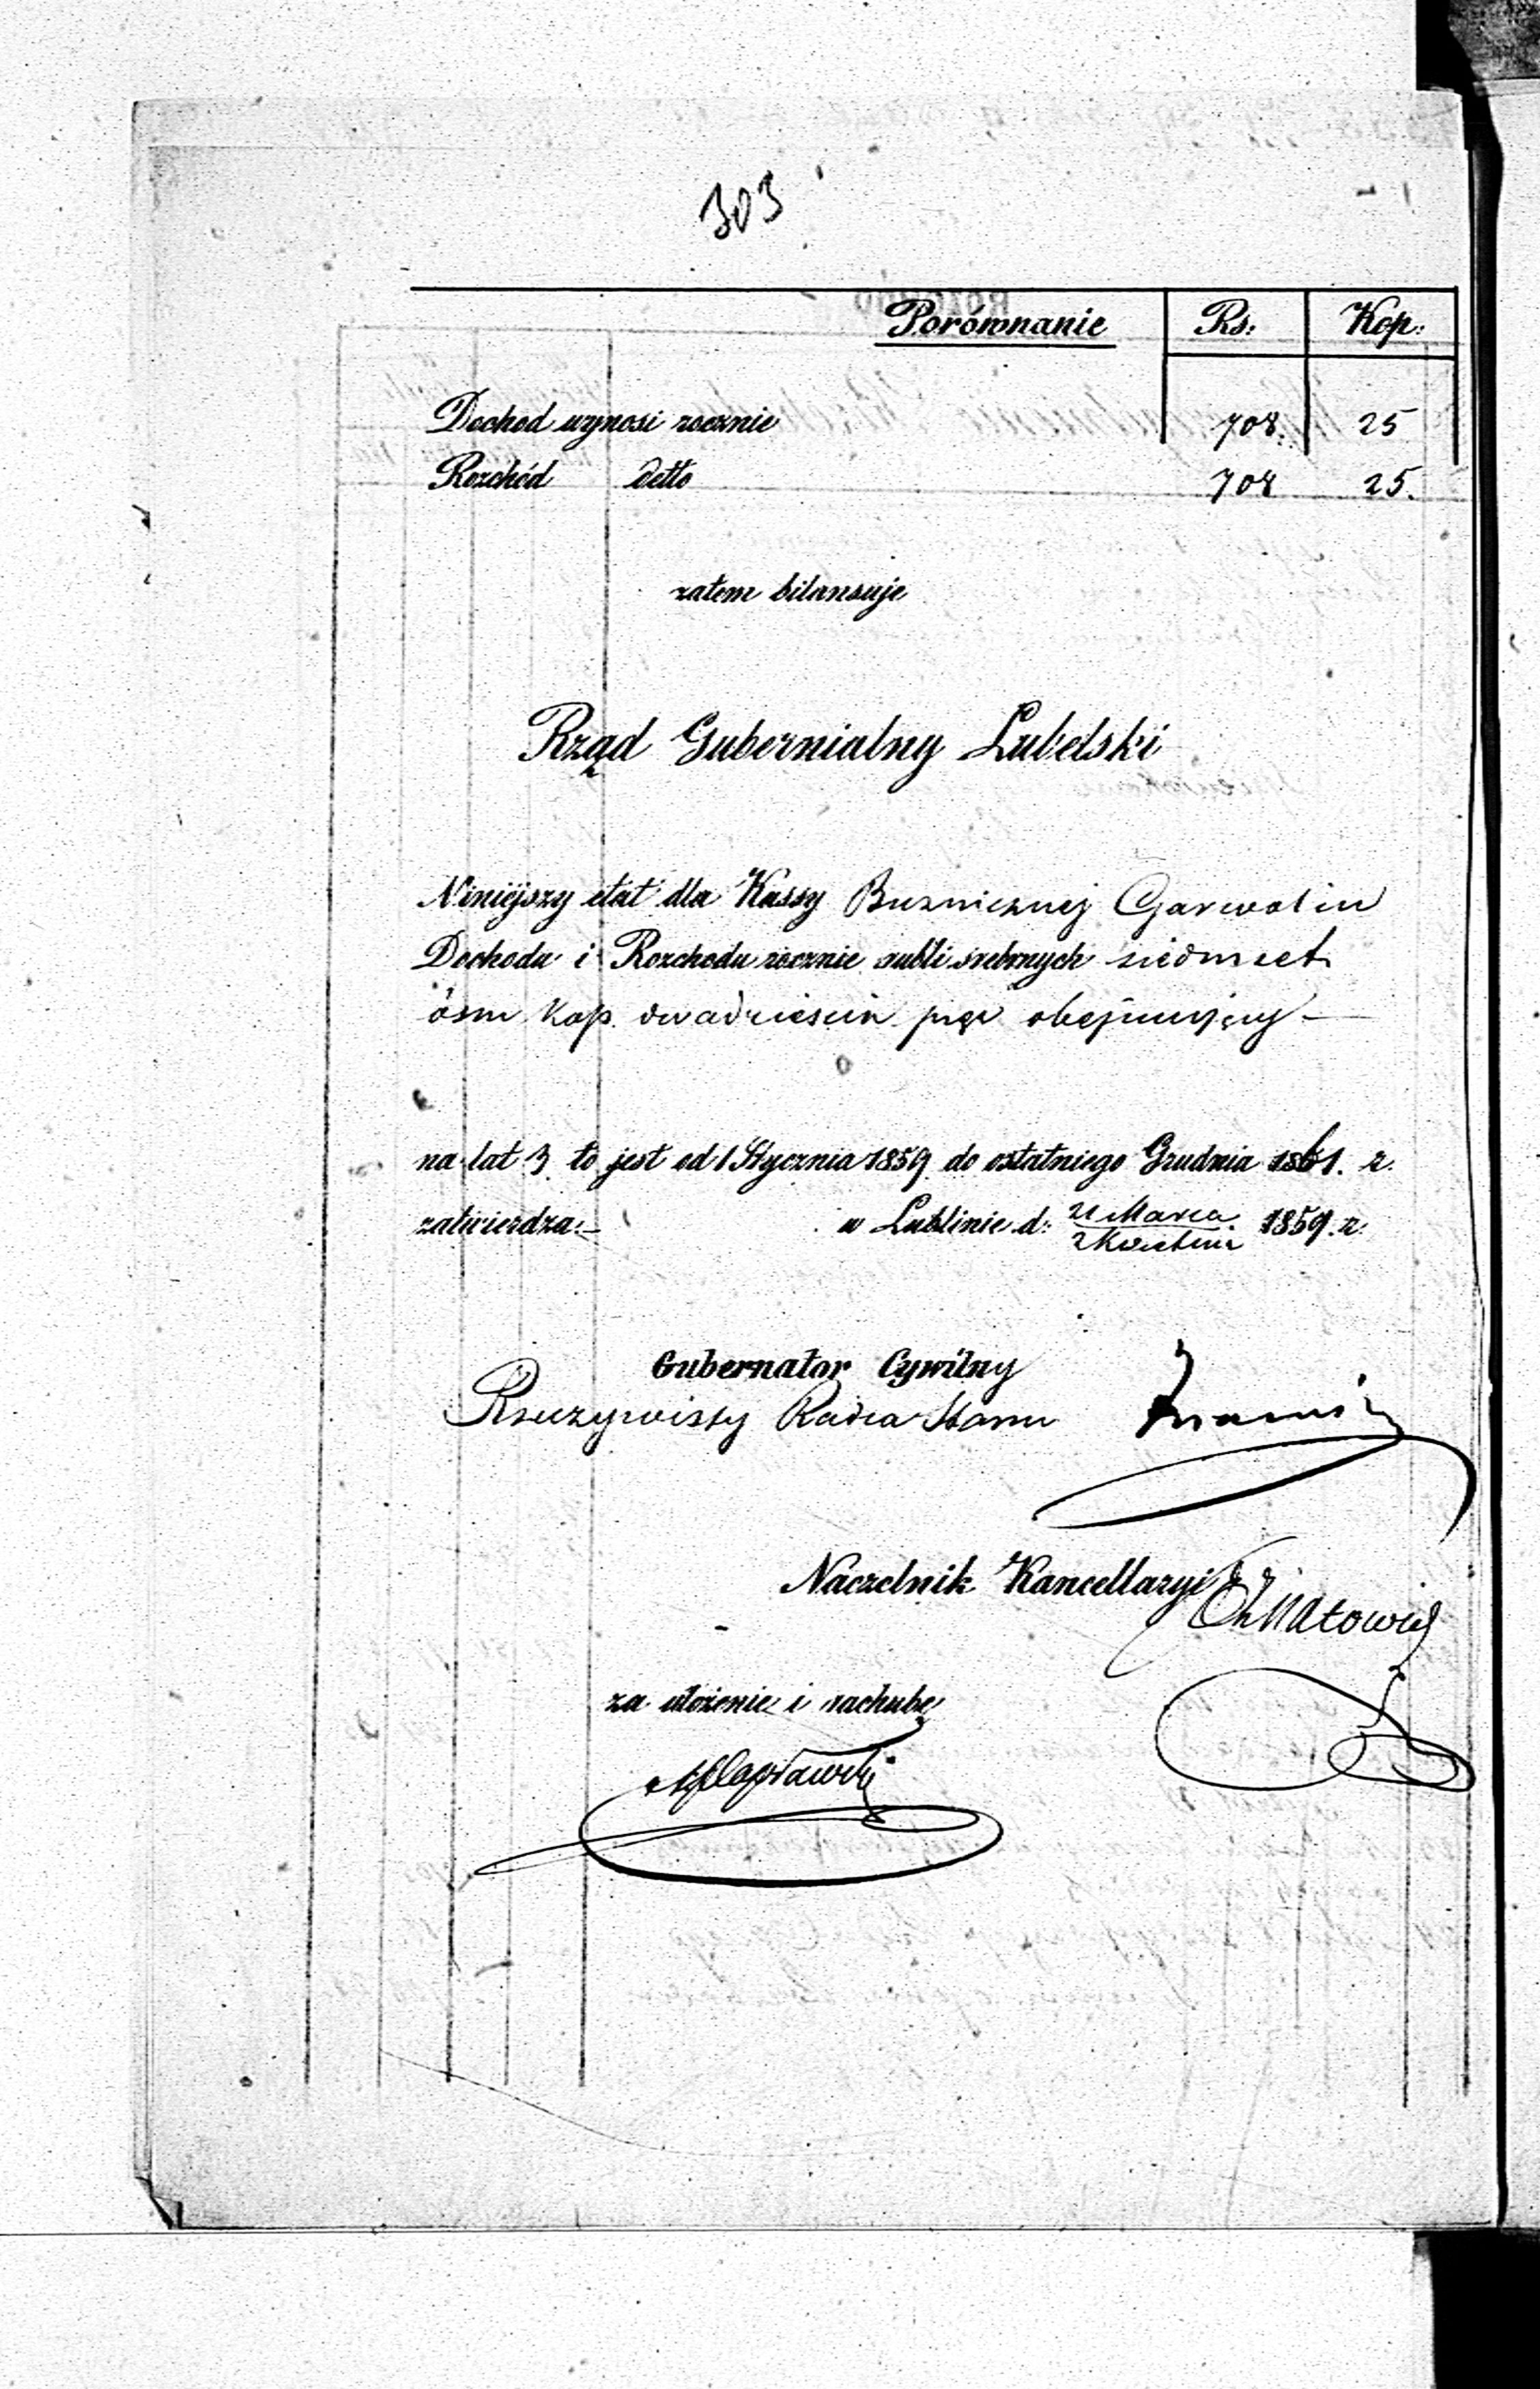 303
Porównanie Rs: Kop:
Dochod wynosi rocznie 708. 25
Rozchód detto 708 25.
zatem bilansuje
Rząd Gubernialny Lubelski
Niniejszy etat dla Kassy Buzniczney Garwolin
Dochodu i Rozchodu rocznie rubli srebrnych siedmset
ósm kop. dwadzieścia pięć obejmujący —
na lat 3 to jest od 1 Stycznia 1859 do ostatniego Grudnia 1861. r.
zatwierdza.— w Lublinie d: 21 Marca / 2 Kwietnia 1859. r.
Gubernator Cywilny
Rzeczywisty Radca Stanu
Naczelnik Kancellaryi
za ułożenie i rachubę